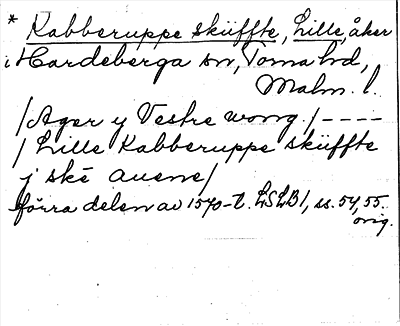 * Kabberuppe skiffte, Lille, åker
i Hardeberga sn, Torna hd,
Malm. l.
/ Ager y Vestre wong. / ----
/ Lille Kabberuppe skiffte
j ské auene /
förra delen av 1570-t. LSLB1, ss. 54, 55.
orig.